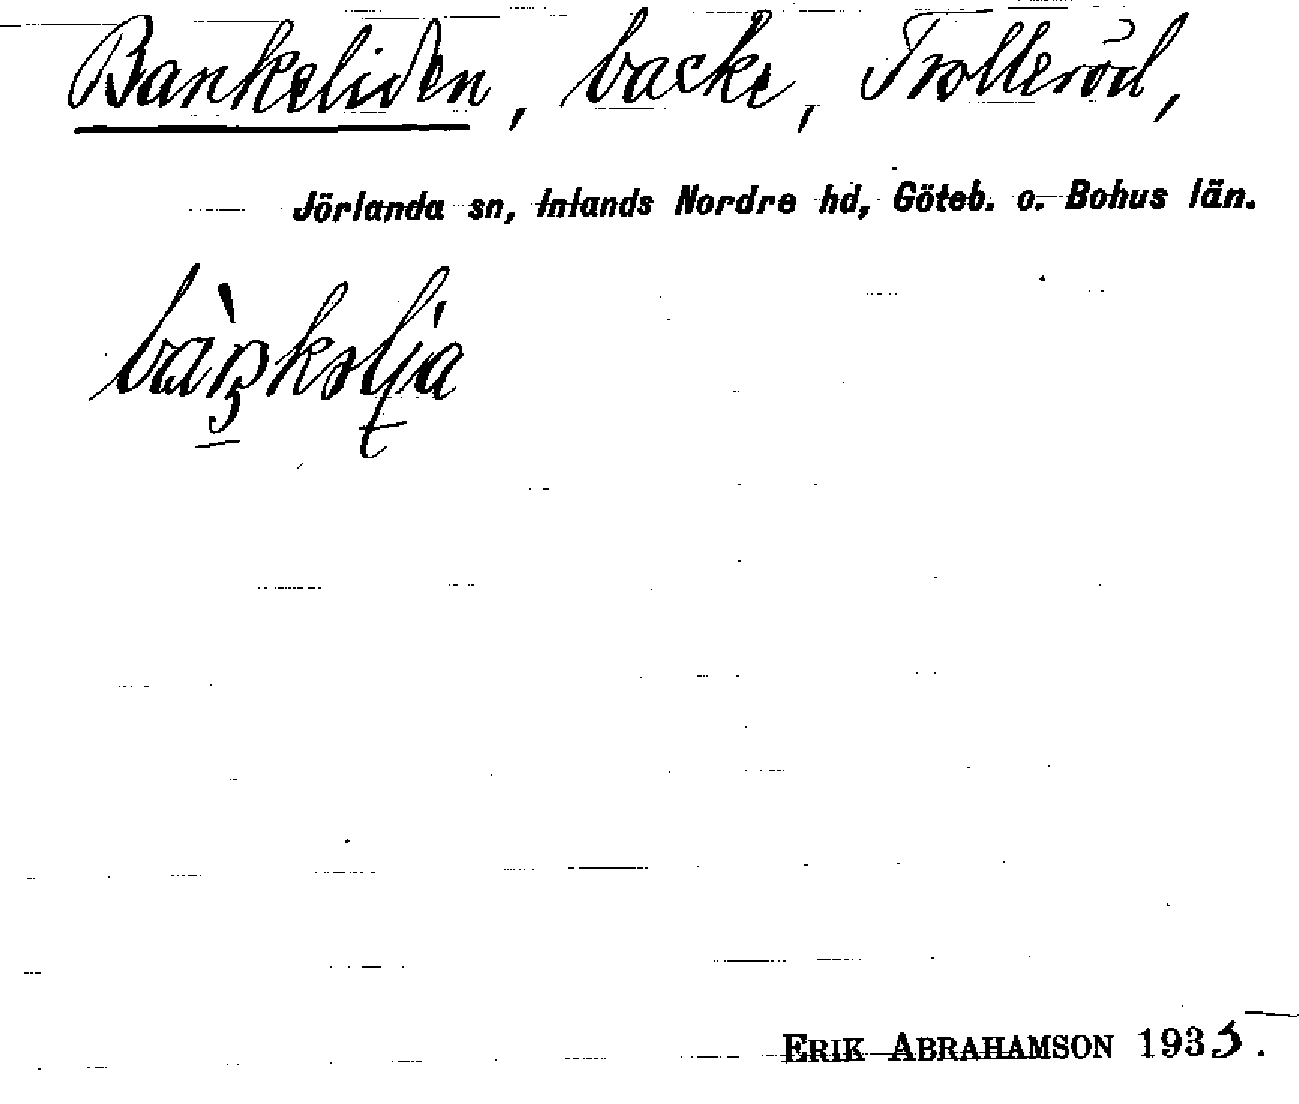 Bankeliden, backe, Trolleröd,
Jörlanda sn, Inlands Nordre hd, Göteb. o. Bohus län.
ERIK ABRAHAMSON 1935.